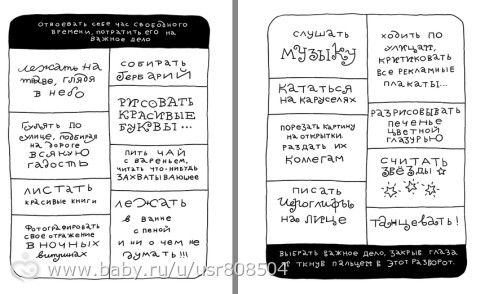 ОТВОЕВАТЬ СЕБЕ ЧАС СВОБОДНОГО
ВРЕМЕНИ, ПОТРАТИТЬ ЕГО НА
ВАЖНОЕ ДЕЛО
ЛЕЖАТЬ НА
ТРАВЕ, ГЛЯДЯ
В НЕБО
ГУЛЯТЬ ПО
УЛИЦЕ, ПОДБИРАЯ
НА ДОРОГЕ
ВСЯКУЮ
ГАДОСТЬ
ЛИСТАТЬ
КРАСИВЫЕ КНИГИ
ФОТОГРАФИРОВАТЬ
СВОЕ ОТРАЖЕНИЕ
В НОЧНЫХ
ВИТРИНАХ
СОБИРАТЬ
ГЕРБАРИЙ
РИСОВАТЬ
КРАСИВЫЕ
БУКВЫ...
ПИТЬ ЧАЙ
С ВАРЕНЬЕМ,
ЧИТАТЬ ЧТО-НИБУДЬ
ЗАХВАТЫВАЮЩЕЕ
ЛЕЖАТЬ
В ВАННЕ
С ПЕНОЙ
И НИ О ЧЕМ НЕ
ДУМАТЬ!!!
СЛУШАТЬ
МУЗЫКУ
КАТАТЬСЯ
НА КАРУСЕЛЯХ
ПОРЕЗАТЬ КАРТИНУ
НА ОТКРЫТКИ.
РАЗДАТЬ ИХ
КОЛЛЕГАМ
ПИСАТЬ
ИЕРОГЛИФЫ
НА ЛИЦЕ
ХОДИТЬ ПО
УЛИЦАМ,
КРИТИКОВАТЬ
ВСЕ РЕКЛАМНЫЕ
ПЛАКАТЫ...
РАЗРИСОВЫВАТЬ
ПЕЧЕНЬЕ
ЦВЕТНОЙ
ГЛАЗУРЬЮ
СЧИТАТЬ
ЗВЁЗДЫ
ТАНЦЕВАТЬ!
ВЫБРАТЬ ВАЖНОЕ ДЕЛО, ЗАКРЫВ ГЛАЗА
И ТКНУВ ПАЛЬЦЕМ В ЭТОТ РАЗВОРОТ.
www.baby.ru/u/usr808504